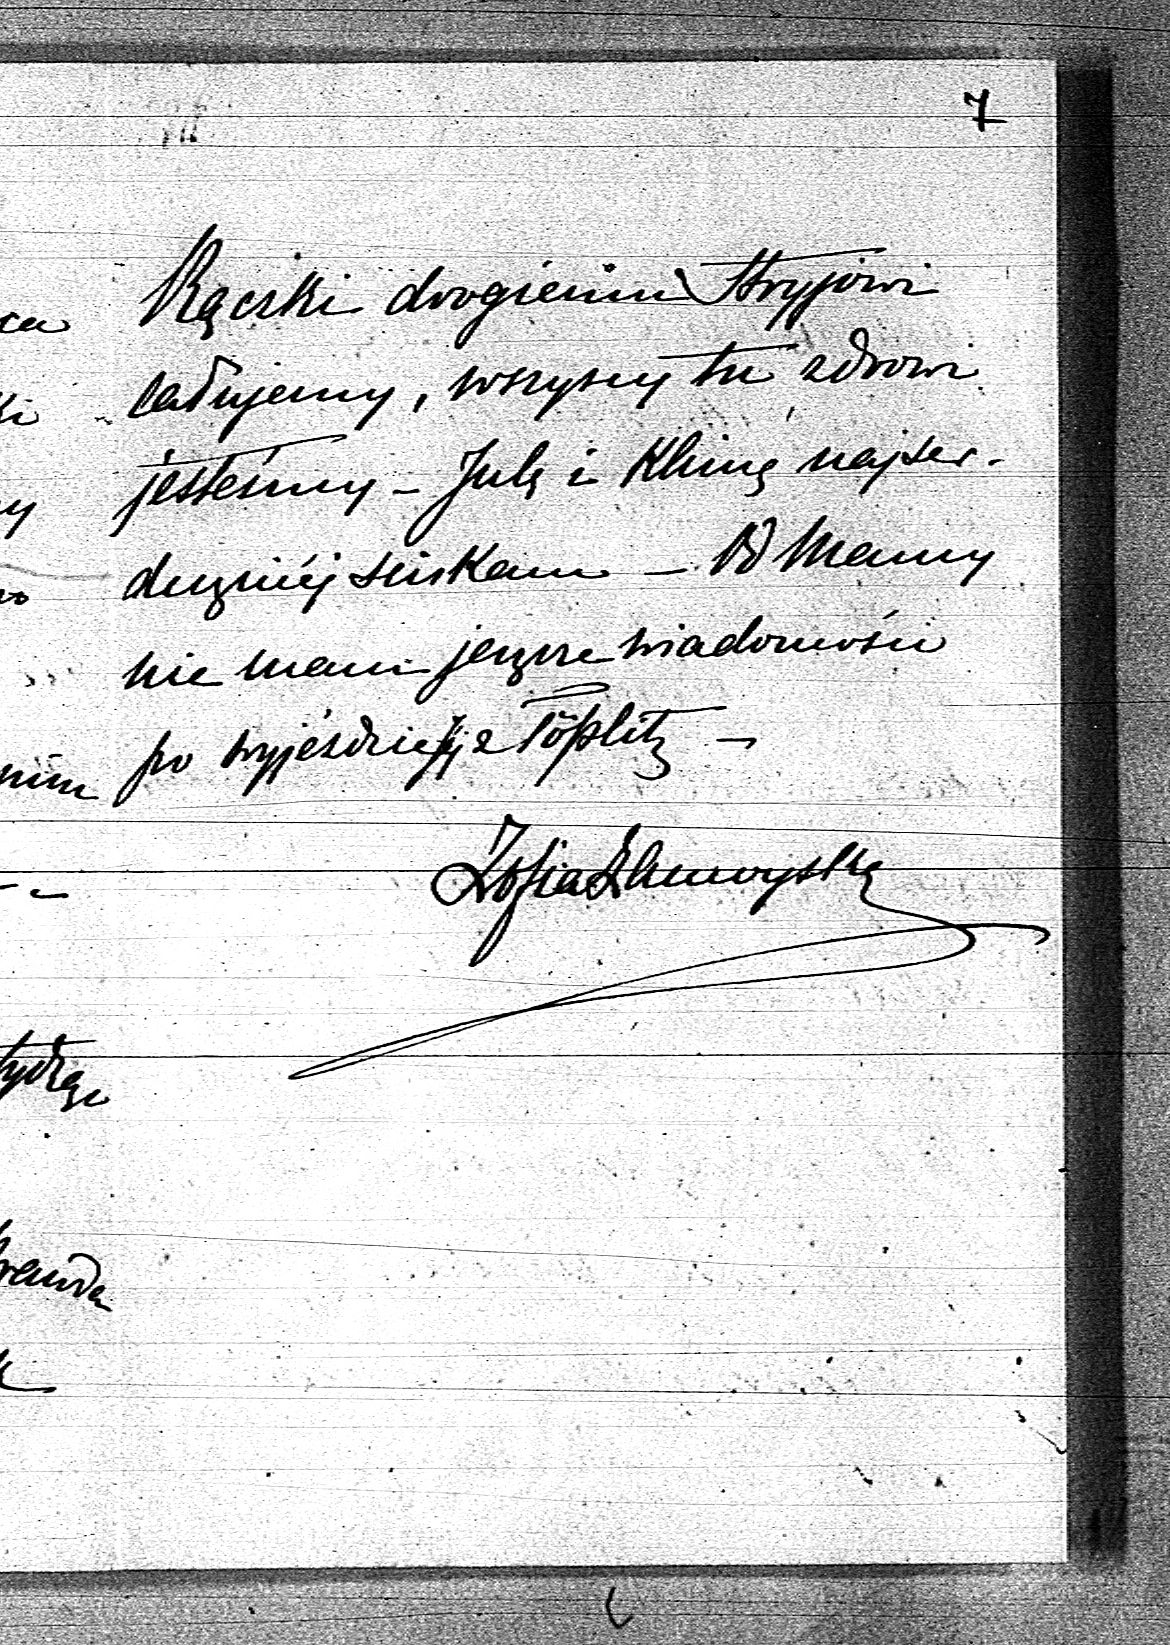 7
Rączki drogiemu Stryjowi
całujemy, wszyscy tu zdrowi
jesteśmy – Julę i Klimę najser-
deczniéj ściskam – Od Mamy
nie mam jeszcze wiadomości
po wyjeździe Jéj z Töplitz –
Zofia Zamoyska